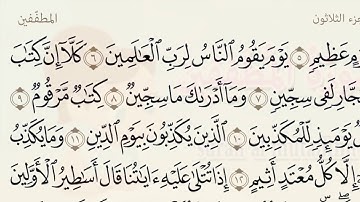 جزء الثلاثون المطففين
مٍ عَظِيمٍ ٥ يَوْمَ يَقُومُ ٱلنَّاسُ لِرَبِّ ٱلْعَٰلَمِينَ ٦ كَلَّآ إِنَّ كِتَٰبَ
جَّارِ لَفِى سِجِّينٍ ٧ وَمَآ أَدْرَىٰكَ مَا سِجِّينٌ ٨ كِتَٰبٌ مَّرْقُومٌ ٩
لٌ يَوْمَئِذٍ لِّلْمُكَذِّبِينَ ١٠ ٱلَّذِينَ يُكَذِّبُونَ بِيَوْمِ ٱلدِّينِ ١١ وَمَا يُكَذِّبُ
إِلَّا كُلُّ مُعْتَدٍ أَثِيمٍ ١٢ إِذَا تُتْلَىٰ عَلَيْهِ ءَايَٰتُنَا قَالَ أَسَٰطِيرُ ٱلْأَوَّلِينَ